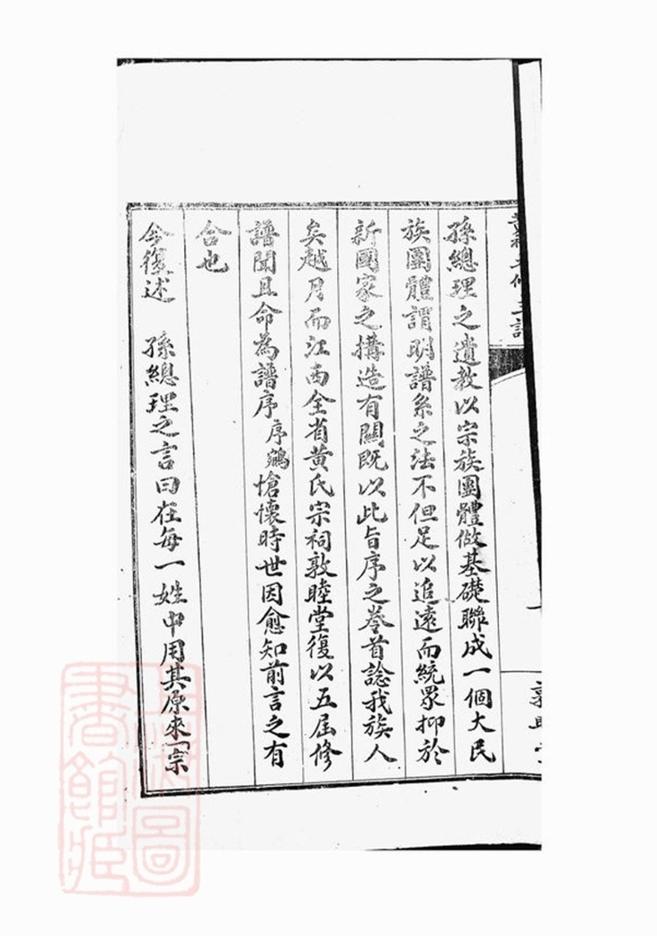 孫總理之遺教以宗族團體做基礎聯成一個大民
族團體謂明譜系之法不但足以追遠而統眾抑於
新國家之搆造有關既以此旨序之卷首諗我族人
矣越月而江西全省黃氏宗祠敦睦堂復以五屆修
譜聞且命為譜序序鵷愴懷時世因愈知前言之有
合也
今復述　孫總理之言曰在每一姓中用其原來宗
書圖
館